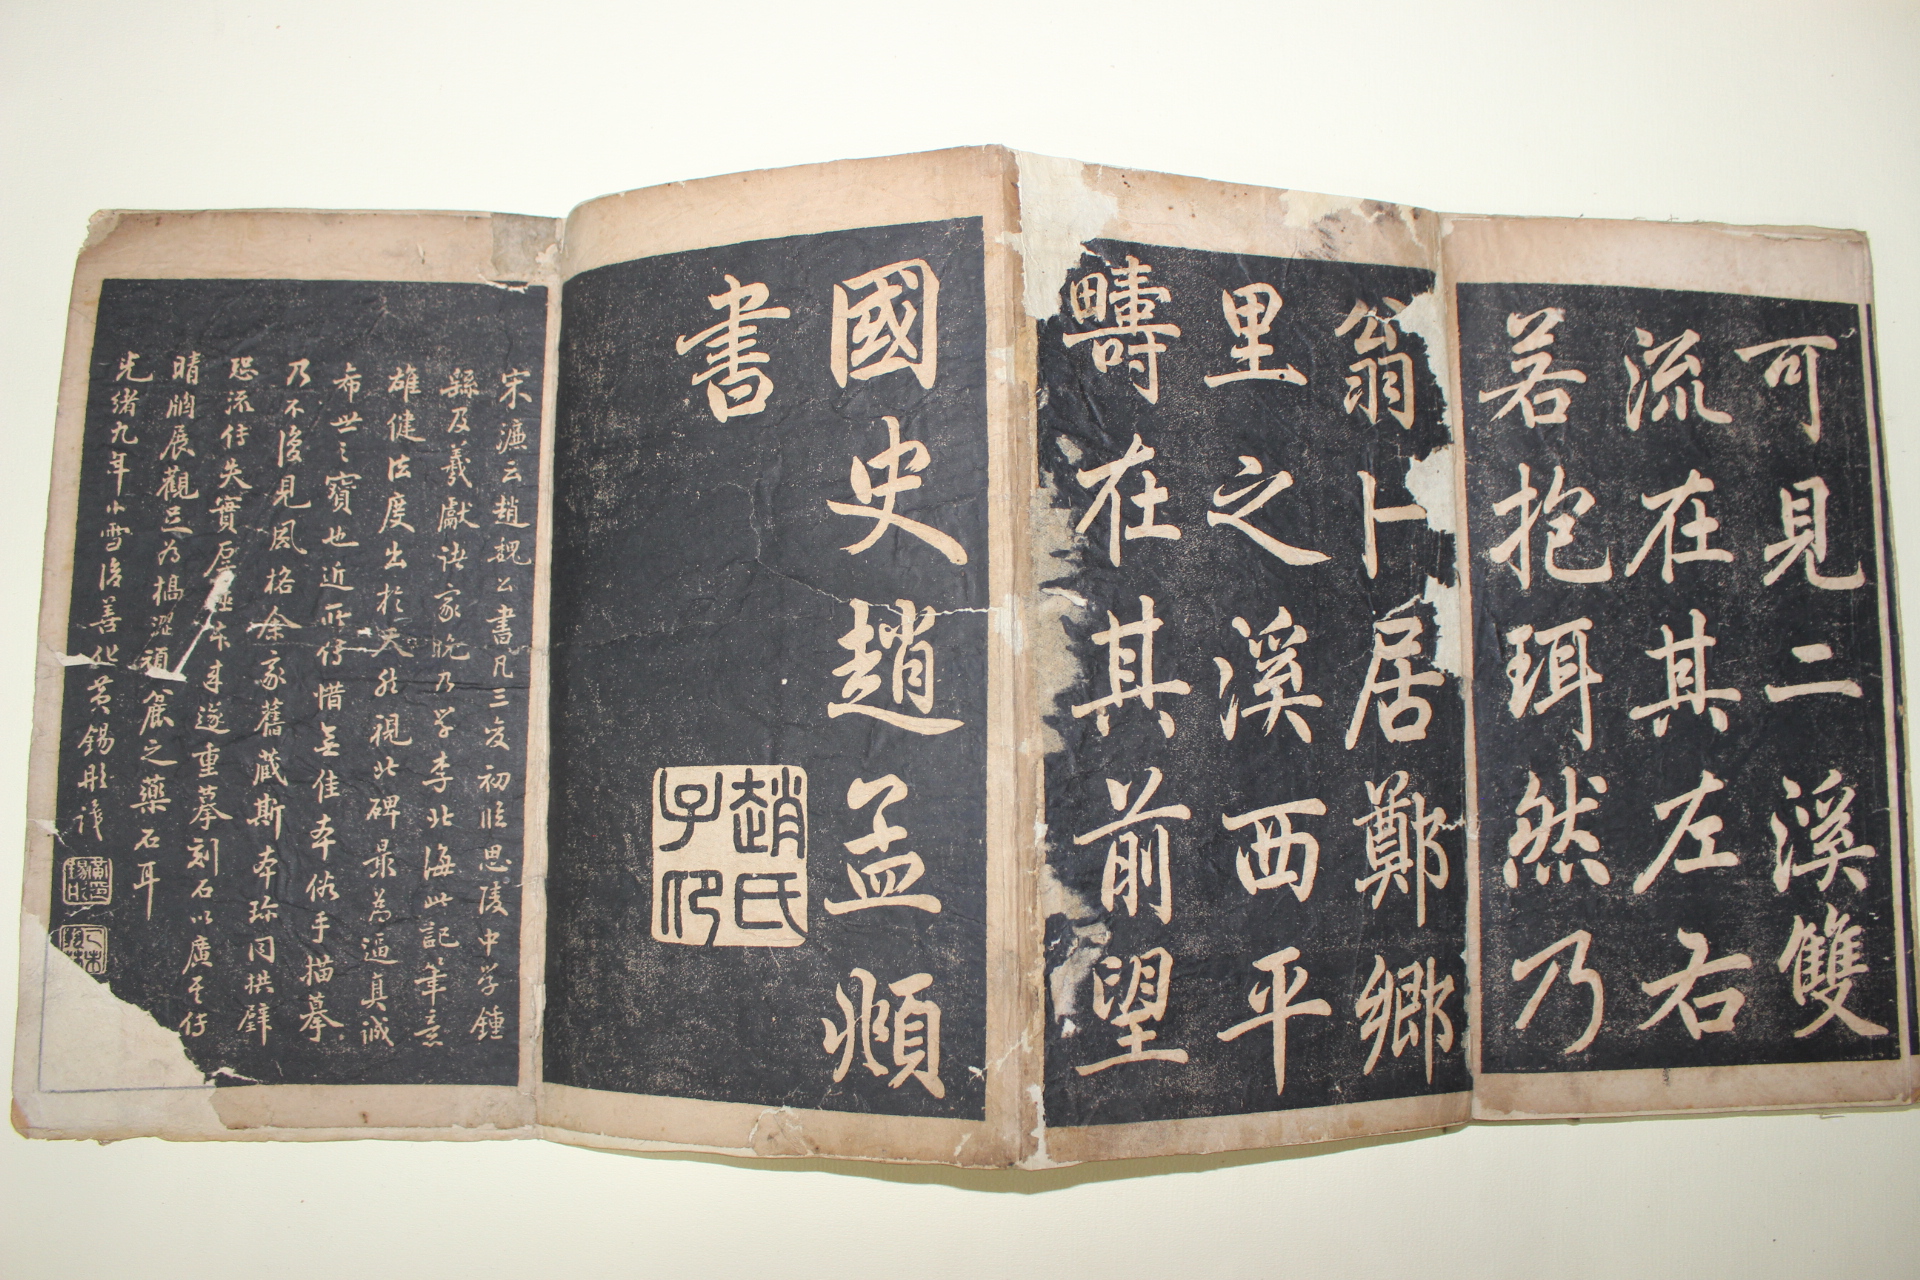 可見二溪雙
流在其左右
若抱珥然乃
翁卜居鄭鄉
里之溪西平
疇在其前望
國史趙孟頫
書
趙氏子印
宋濂云趙魏公書凡三變初臨思陵中學鍾
繇及羲獻諸家晚乃學李北海此記筆意
雄健法度出於天然視北碑最為逼真誠
希世之寶也近所傳惜無佳本俗手描摹
乃不復見風格余家舊藏斯本珍同拱璧
恐流傳失實
遂重摹刻石以廣其傳
晴牕展觀足為槁澀頑麤之藥石耳
光緒九年小雪後善化黃錫彤識